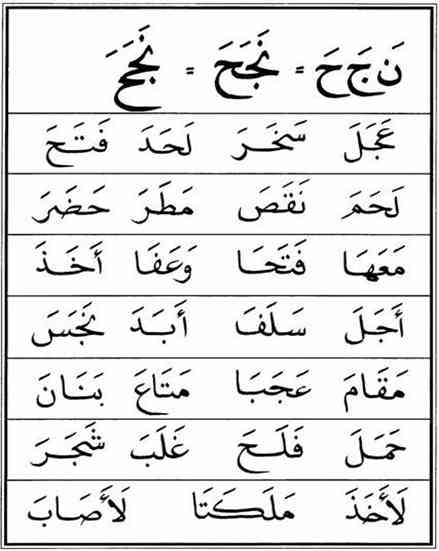 نَ جَ حَ = نَجَحَ = نَجَحَ
عَجَلَ سَخَرَ لَحَدَ فَتَحَ
لَحَمَ نَقَصَ مَطَرَ حَضَرَ
مَعَهَا فَتَحَا وَعَفَا أَخَذَ
أَجَلَ سَلَفَ أَبَدَ نَجَسَ
مَقَامَ عَجَبَا مَتَاعَ بَنَانَ
حَمَلَ فَلَحَ غَلَبَ شَجَرَ
لَأَخَذَ مَلَكَتَا لَأَصَابَ